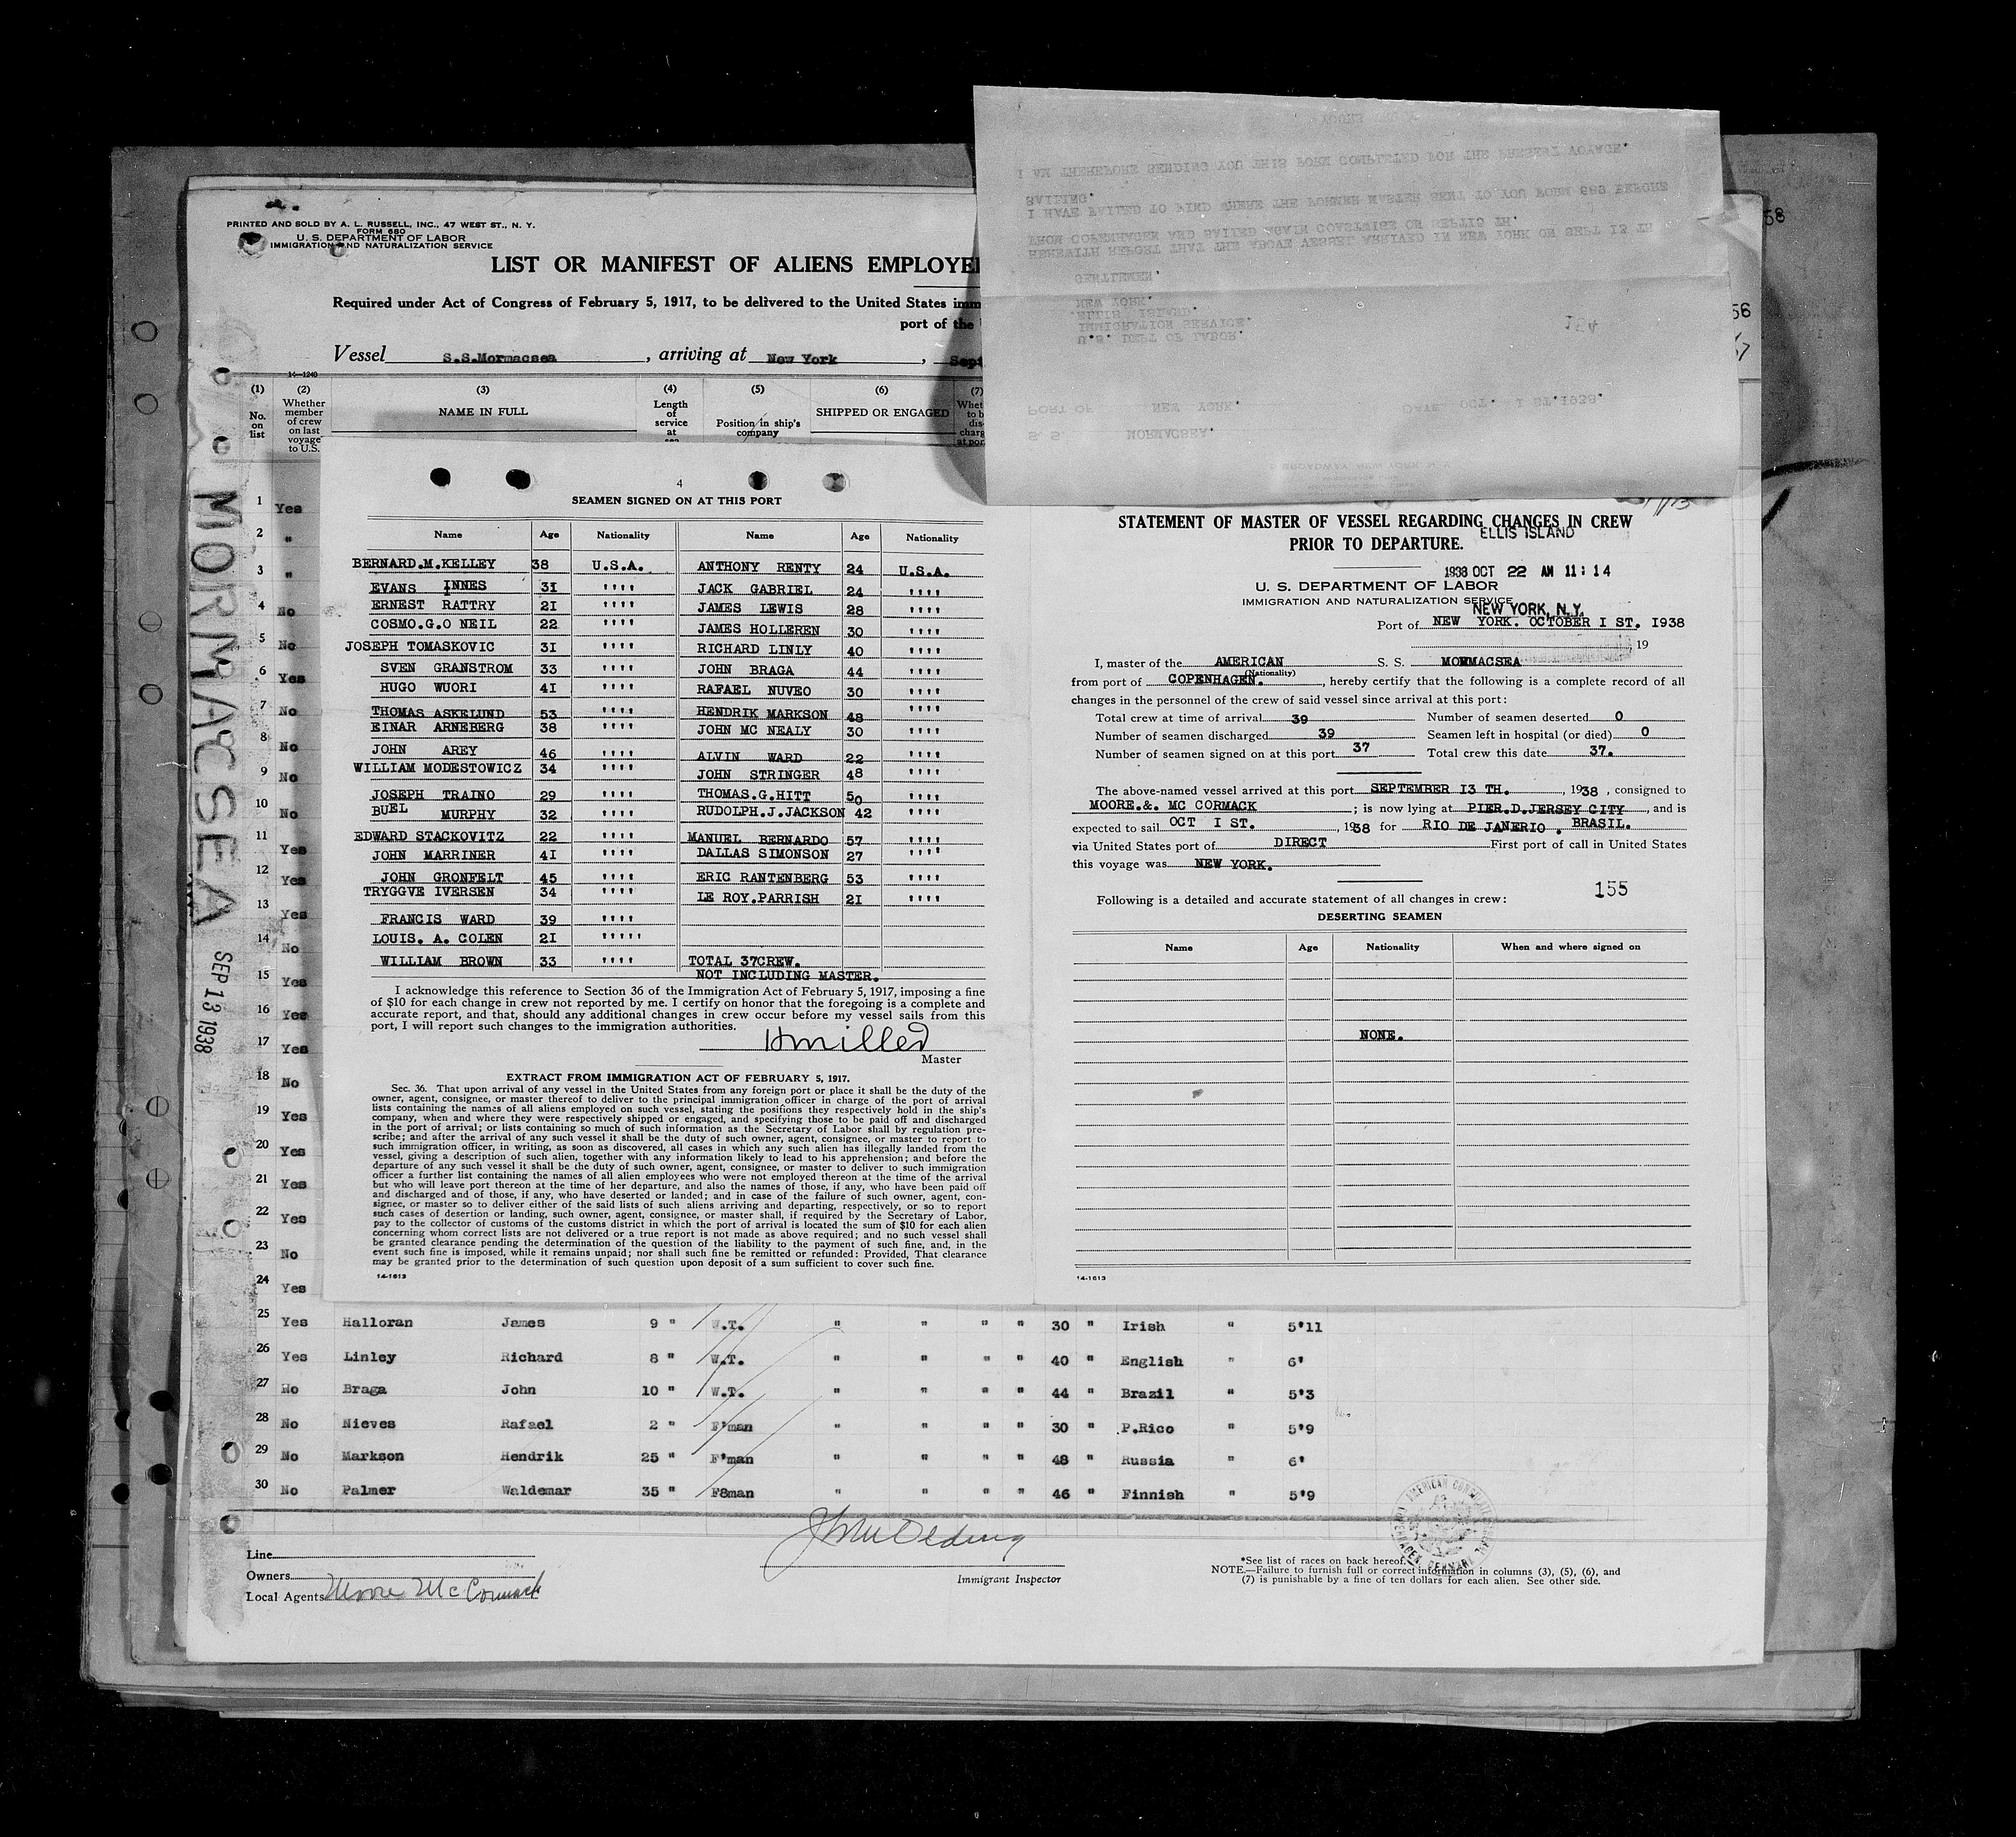 PRINTED AND SOLD BY A. L. RUSSELL, INC., 47 WEST ST., N. Y.
FORM 680
U. S. DEPARTMENT OF LABOR
IMMIGRATION AND NATURALIZATION SERVICE
LIST OR MANIFEST OF ALIENS EMPLOYE
Required under Act of Congress of February 5, 1917, to be delivered to the United States imm
port of the
Vessel S.S.Mormacsea , arriving at New York , Sept
14-1240
(1) No. on list
(2) Whether member of crew on last voyage to U.S.
(3) NAME IN FULL
(4) Length of service at sea
(5) Position in ship's company
(6) SHIPPED OR ENGAGED
(7) Whet to b dis- charg at por
MORMACSEA SEP 13 1938
1 Yes
2 "
3 "
4 No
5 No
6 Yes
7 No
8 No
9 No
10 No
11 Yes
12 Yes
13 Yes
14 No
15 Yes
16 Yes
17 Yes
18 No
19 Yes
20 Yes
21 Yes
22 Yes
23 No
24 Yes
25 Yes Halloran James 9 " W.T. " " " " 30 " Irish " 5'11
26 Yes Linley Richard 8 " W.T. " " " " 40 " English " 6'
27 No Braga John 10 " W.T. " " " " 44 " Brazil " 5'3
28 No Nieves Rafael 2 " F'man " " " " 30 " P.Rico " 5'9
29 No Markson Hendrik 25 " F'man " " " " 48 " Russia " 6'
30 No Palmer Waldemar 35 " F8man " " " " 46 " Finnish " 5'9
Line
Owners
Local Agents Moore McCormack
Immigrant Inspector
*See list of races on back hereof.
NOTE.—Failure to furnish full or correct information in columns (3), (5), (6), and
(7) is punishable by a fine of ten dollars for each alien. See other side.
4
SEAMEN SIGNED ON AT THIS PORT
Name Age Nationality Name Age Nationality
BERNARD.M.KELLEY 38 U.S.A. ANTHONY RENTY 24 U.S.A.
EVANS INNES 31 '''' JACK GABRIEL 24 ''''
ERNEST RATTRY 21 '''' JAMES LEWIS 28 ''''
COSMO.G.O NEIL 22 '''' JAMES HOLLEREN 30 ''''
JOSEPH TOMASKOVIC 31 '''' RICHARD LINLY 40 ''''
SVEN GRANSTROM 33 '''' JOHN BRAGA 44 ''''
HUGO WUORI 41 '''' RAFAEL NUVEO 30 ''''
THOMAS ASKELUND 53 '''' HENDRIK MARKSON 48 ''''
EINAR ARNEBERG 38 '''' JOHN MC NEALY 30 ''''
JOHN AREY 46 '''' ALVIN WARD 22 ''''
WILLIAM MODESTOWICZ 34 '''' JOHN STRINGER 48 ''''
JOSEPH TRAINO 29 '''' THOMAS.G.HITT 50 ''''
BUEL MURPHY 32 '''' RUDOLPH.J.JACKSON 42 ''''
EDWARD STACKOVITZ 22 '''' MANUEL BERNARDO 57 ''''
JOHN MARRINER 41 '''' DALLAS SIMONSON 27 ''''
JOHN GRONFELT 45 '''' ERIC RANTENBERG 53 ''''
TRYGGVE IVERSEN 34 '''' LE ROY.PARRISH 21 ''''
FRANCIS WARD 39 ''''
LOUIS. A. COLEN 21 '''''
WILLIAM BROWN 33 '''' TOTAL 37CREW.
NOT INCLUDING MASTER.
I acknowledge this reference to Section 36 of the Immigration Act of February 5, 1917, imposing a fine
of $10 for each change in crew not reported by me. I certify on honor that the foregoing is a complete and
accurate report, and that, should any additional changes in crew occur before my vessel sails from this
port, I will report such changes to the immigration authorities.
HMiller
Master
EXTRACT FROM IMMIGRATION ACT OF FEBRUARY 5, 1917.
Sec. 36. That upon arrival of any vessel in the United States from any foreign port or place it shall be the duty of the
owner, agent, consignee, or master thereof to deliver to the principal immigration officer in charge of the port of arrival
lists containing the names of all aliens employed on such vessel, stating the positions they respectively hold in the ship's
company, when and where they were respectively shipped or engaged, and specifying those to be paid off and discharged
in the port of arrival; or lists containing so much of such information as the Secretary of Labor shall by regulation pre-
scribe; and after the arrival of any such vessel it shall be the duty of such owner, agent, consignee, or master to report to
such immigration officer, in writing, as soon as discovered, all cases in which any such alien has illegally landed from the
vessel, giving a description of such alien, together with any information likely to lead to his apprehension; and before the
departure of any such vessel it shall be the duty of such owner, agent, consignee, or master to deliver to such immigration
officer a further list containing the names of all alien employees who were not employed thereon at the time of the arrival
but who will leave port thereon at the time of her departure, and also the names of those, if any, who have been paid off
and discharged and of those, if any, who have deserted or landed; and in case of the failure of such owner, agent, con-
signee, or master so to deliver either of the said lists of such aliens arriving and departing, respectively, or so to report
such cases of desertion or landing, such owner, agent, consignee, or master shall, if required by the Secretary of Labor,
pay to the collector of customs of the customs district in which the port of arrival is located the sum of $10 for each alien
concerning whom correct lists are not delivered or a true report is not made as above required; and no such vessel shall
be granted clearance pending the determination of the question of the liability to the payment of such fine, and, in the
event such fine is imposed, while it remains unpaid; nor shall such fine be remitted or refunded: Provided, That clearance
may be granted prior to the determination of such question upon deposit of a sum sufficient to cover such fine.
14-1613
I AM THEREFORE SENDING YOU THIS FORM COMPLETED FOR THE PRESENT VOYAGE.
SAILING.
I HAVE FAILED TO FIND WHERE THE FORMER MASTER SENT TO YOU FORM 689 BEFORE
FROM COPENHAGEN AND SAILED AGAIN COASTWISE ON SEPT16 TH.
HEREWITH REPORT THAT THE ABOVE VESSEL ARRIVED IN NEW YORK ON SEPT 13 TH
GENTLEMEN.
NEW YORK.
ELLIS ISLAND.
IMMIGRATION SERVICE.
U.S. DEPT OF LABOR.
154
PORT OF NEW YORK. DATE. OCT. 1 ST.1938.
S. S. MORMACSEA.
STATEMENT OF MASTER OF VESSEL REGARDING CHANGES IN CREW
PRIOR TO DEPARTURE.
ELLIS ISLAND
1938 OCT 22 AM 11:14
U. S. DEPARTMENT OF LABOR
IMMIGRATION AND NATURALIZATION SERVICE
NEW YORK, N.Y.
Port of NEW YORK. OCTOBER I ST. 1938
, 19
I, master of the AMERICAN S. S. MORMACSEA
(Nationality)
from port of COPENHAGEN. , hereby certify that the following is a complete record of all
changes in the personnel of the crew of said vessel since arrival at this port:
Total crew at time of arrival 39 Number of seamen deserted 0
Number of seamen discharged 39 Seamen left in hospital (or died) 0
Number of seamen signed on at this port 37 Total crew this date 37.
The above-named vessel arrived at this port SEPTEMBER 13 TH. , 1938 , consigned to
MOORE.&. MC CORMACK ; is now lying at PIER.D.JERSEY CITY , and is
expected to sail OCT I ST. , 1938 for RIO DE JANERIO . BRASIL.
via United States port of DIRECT First port of call in United States
this voyage was NEW YORK.
155
Following is a detailed and accurate statement of all changes in crew:
DESERTING SEAMEN
Name Age Nationality When and where signed on
NONE.
14-1613
58
56